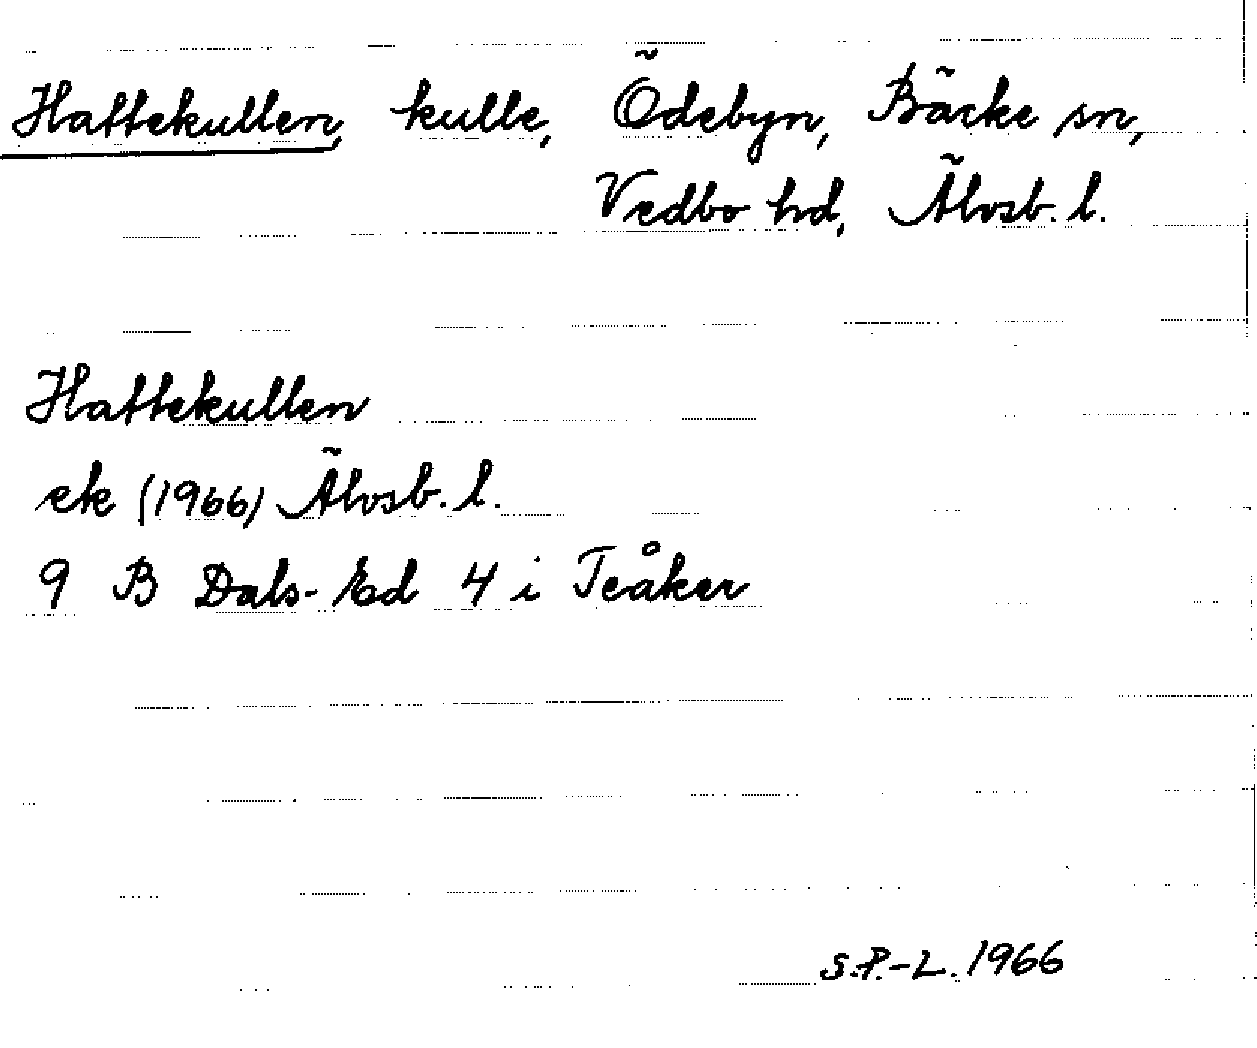 Hattekullen, kulle, Ödebyn, Bäcke sn,
Vedbo hd, Älvsb. l.
Hattekullen
ek (1966) Älvsb. l.
9 B Dals-Ed 4 i Teåker
S.P.-L. 1966